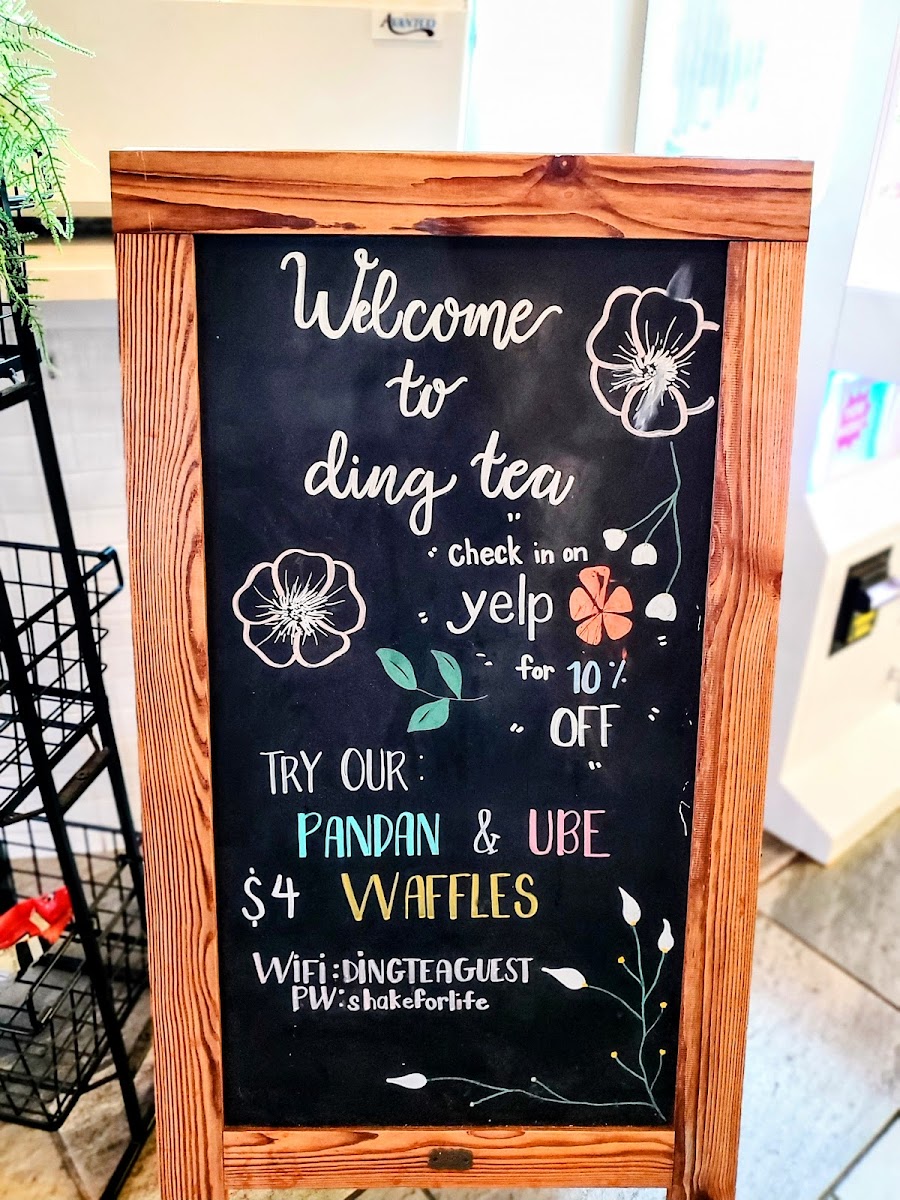 AVANTCO
Welcome
to
ding tea
check in on
yelp
for 10%
OFF
TRY OUR:
PANDAN & UBE
$4 WAFFLES
WiFi:DINGTEAGUEST
PW:shakeforlife